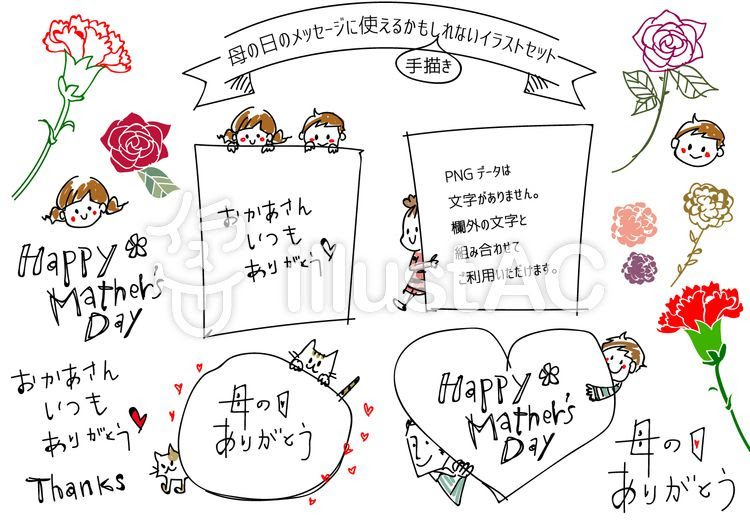 母の日のメッセージに使えるかもしれないイラストセット
手描き
おかあさん
いつも
ありがとう
PNGデータは
文字がありません。
欄外の文字と
組み合わせて
ご利用いただけます。
Happy
Mather's
Day
おかあさん
いつも
ありがとう
Thanks
母の日
ありがとう
Happy
Mather's
Day
母の日
ありがとう
イラストAC
illustAC